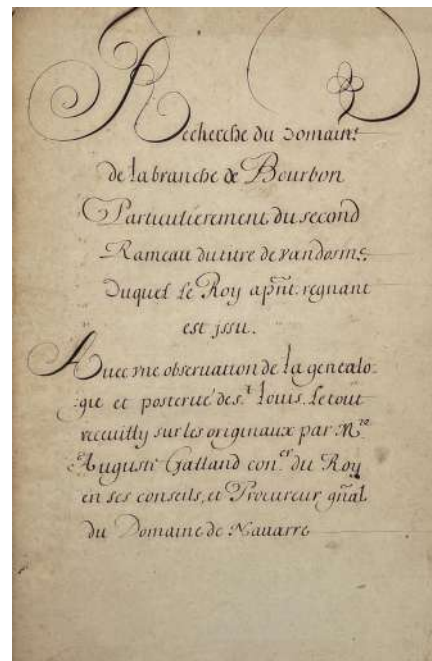 Recherche du Domaine
de la branche de Bourbon
Particulierement du second
Rameau du tire de vandosme
Duquel Le Roy apñt regnant
est jssu.
Auec vne obseruation de la genealo-
gie et posterité de s.t Louis. Le tout
recueilly sur les originaux par M.re
Auguste Galland con.er du Roy
en ses conseils, et Procureur gñal
du Domaine de Nauarre